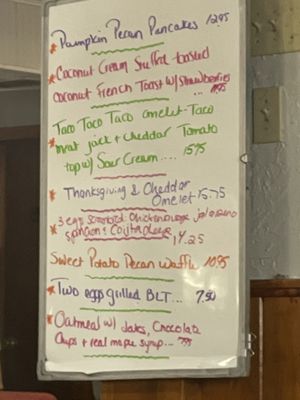 Pumpkin Pecan Pancakes 12.95
Coconut Cream Stuffed toasted
coconut French Toast w/ Strawberries
...
Taco Taco Taco omelet-Taco
meat jack + cheddar Tomato
top w/ Sour Cream .... 15.75
Thanksgiving & Cheddar
Omelet 15.75
3 egg scrambled
14.25
Sweet Potato Pecan Waffle 10.95
Two eggs grilled BLT... 7.50
Oatmeal w/ dates, Chocolate
Chips + real maple syrup...